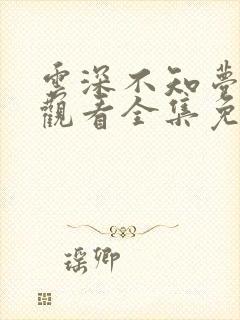 雲深不知夢
觀看全集免
瑶卿